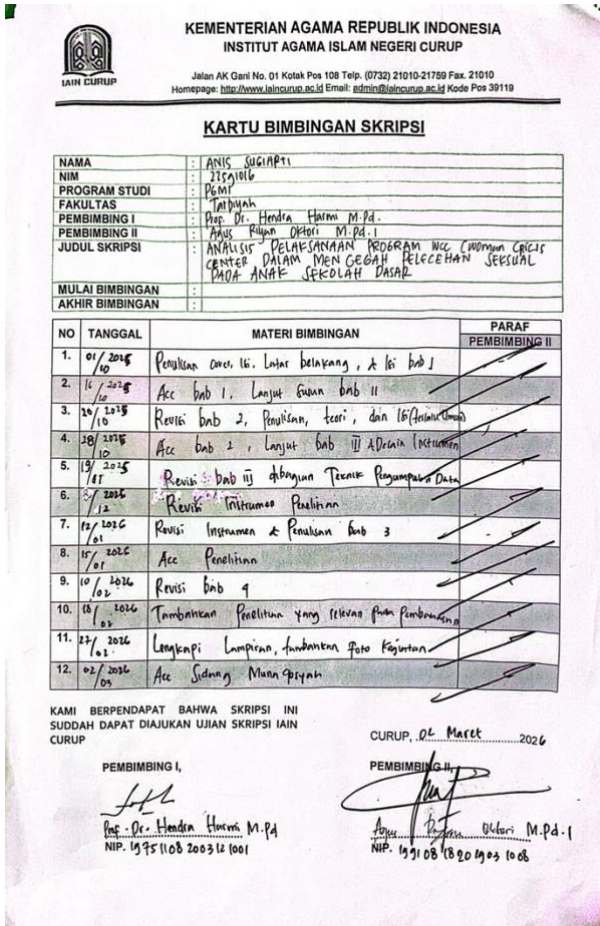 KEMENTERIAN AGAMA REPUBLIK INDONESIA
INSTITUT AGAMA ISLAM NEGERI CURUP
IAIN CURUP
Jalan AK Gani No. 01 Kotak Pos 108 Telp. (0732) 21010-21759 Fax. 21010
Homepage: http://www.iaincurup.ac.id Email: admin@iaincurup.ac.id Kode Pos 39119
KARTU BIMBINGAN SKRIPSI
NAMA : ANIS SUGIARTI
NIM : 22591016
PROGRAM STUDI : PGMI
FAKULTAS : Tarbiyah
PEMBIMBING I : Prof. Dr. Hendra Harmi M.Pd.
PEMBIMBING II : Agus Riyan Oktori M.Pd.I
JUDUL SKRIPSI : ANALISIS PELAKSANAAN PROGRAM WCC (WOMAN CRICIS
CENTER DALAM MENGEGAH PELECEHAN SEKSUAL
PADA ANAK SEKOLAH DASAR
MULAI BIMBINGAN :
AKHIR BIMBINGAN :
NO TANGGAL MATERI BIMBINGAN PARAF
PEMBIMBING II
1. 01/10 2025 Penulisan cover, isi, Latar belakang, & Isi bab 1
2. 16/10 2025 Acc bab 1, Lanjut Susun bab II
3. 20/10 2025 Revisi bab 2, Penulisan, teori, dan Isi (terlalu Umum)
4. 28/10 2025 Acc bab 2, Lanjut bab III & Desain Instrumen
5. 19/11 2025 Revisi bab iij dibagian Teknik Pengumpulan Data
6. /12 Revisi Instrumen Penelitian
7. 12/01 2026 Revisi Instrumen & Penulisan bab 3
8. 15/01 2026 Acc Penelitian
9. 10/02 2026 Revisi bab 4
10. 18/02 2026 Tambahkan Penelitian yang relevan pada Pembahasan
11. 27/02 2026 Lengkapi Lampiran, tambahkan foto Kegiatan
12. 02/03 2026 Acc Sidang Munaqosyah
KAMI BERPENDAPAT BAHWA SKRIPSI INI
SUDDAH DAPAT DIAJUKAN UJIAN SKRIPSI IAIN
CURUP
CURUP, 02 Maret 2026
PEMBIMBING I,
PEMBIMBING II,
Prof. Dr. Hendra Harmi M.Pd
NIP. 19751108 200312 1001
Agus Riyan Oktori M.Pd.I
NIP. 199108 18 20 1903 1008